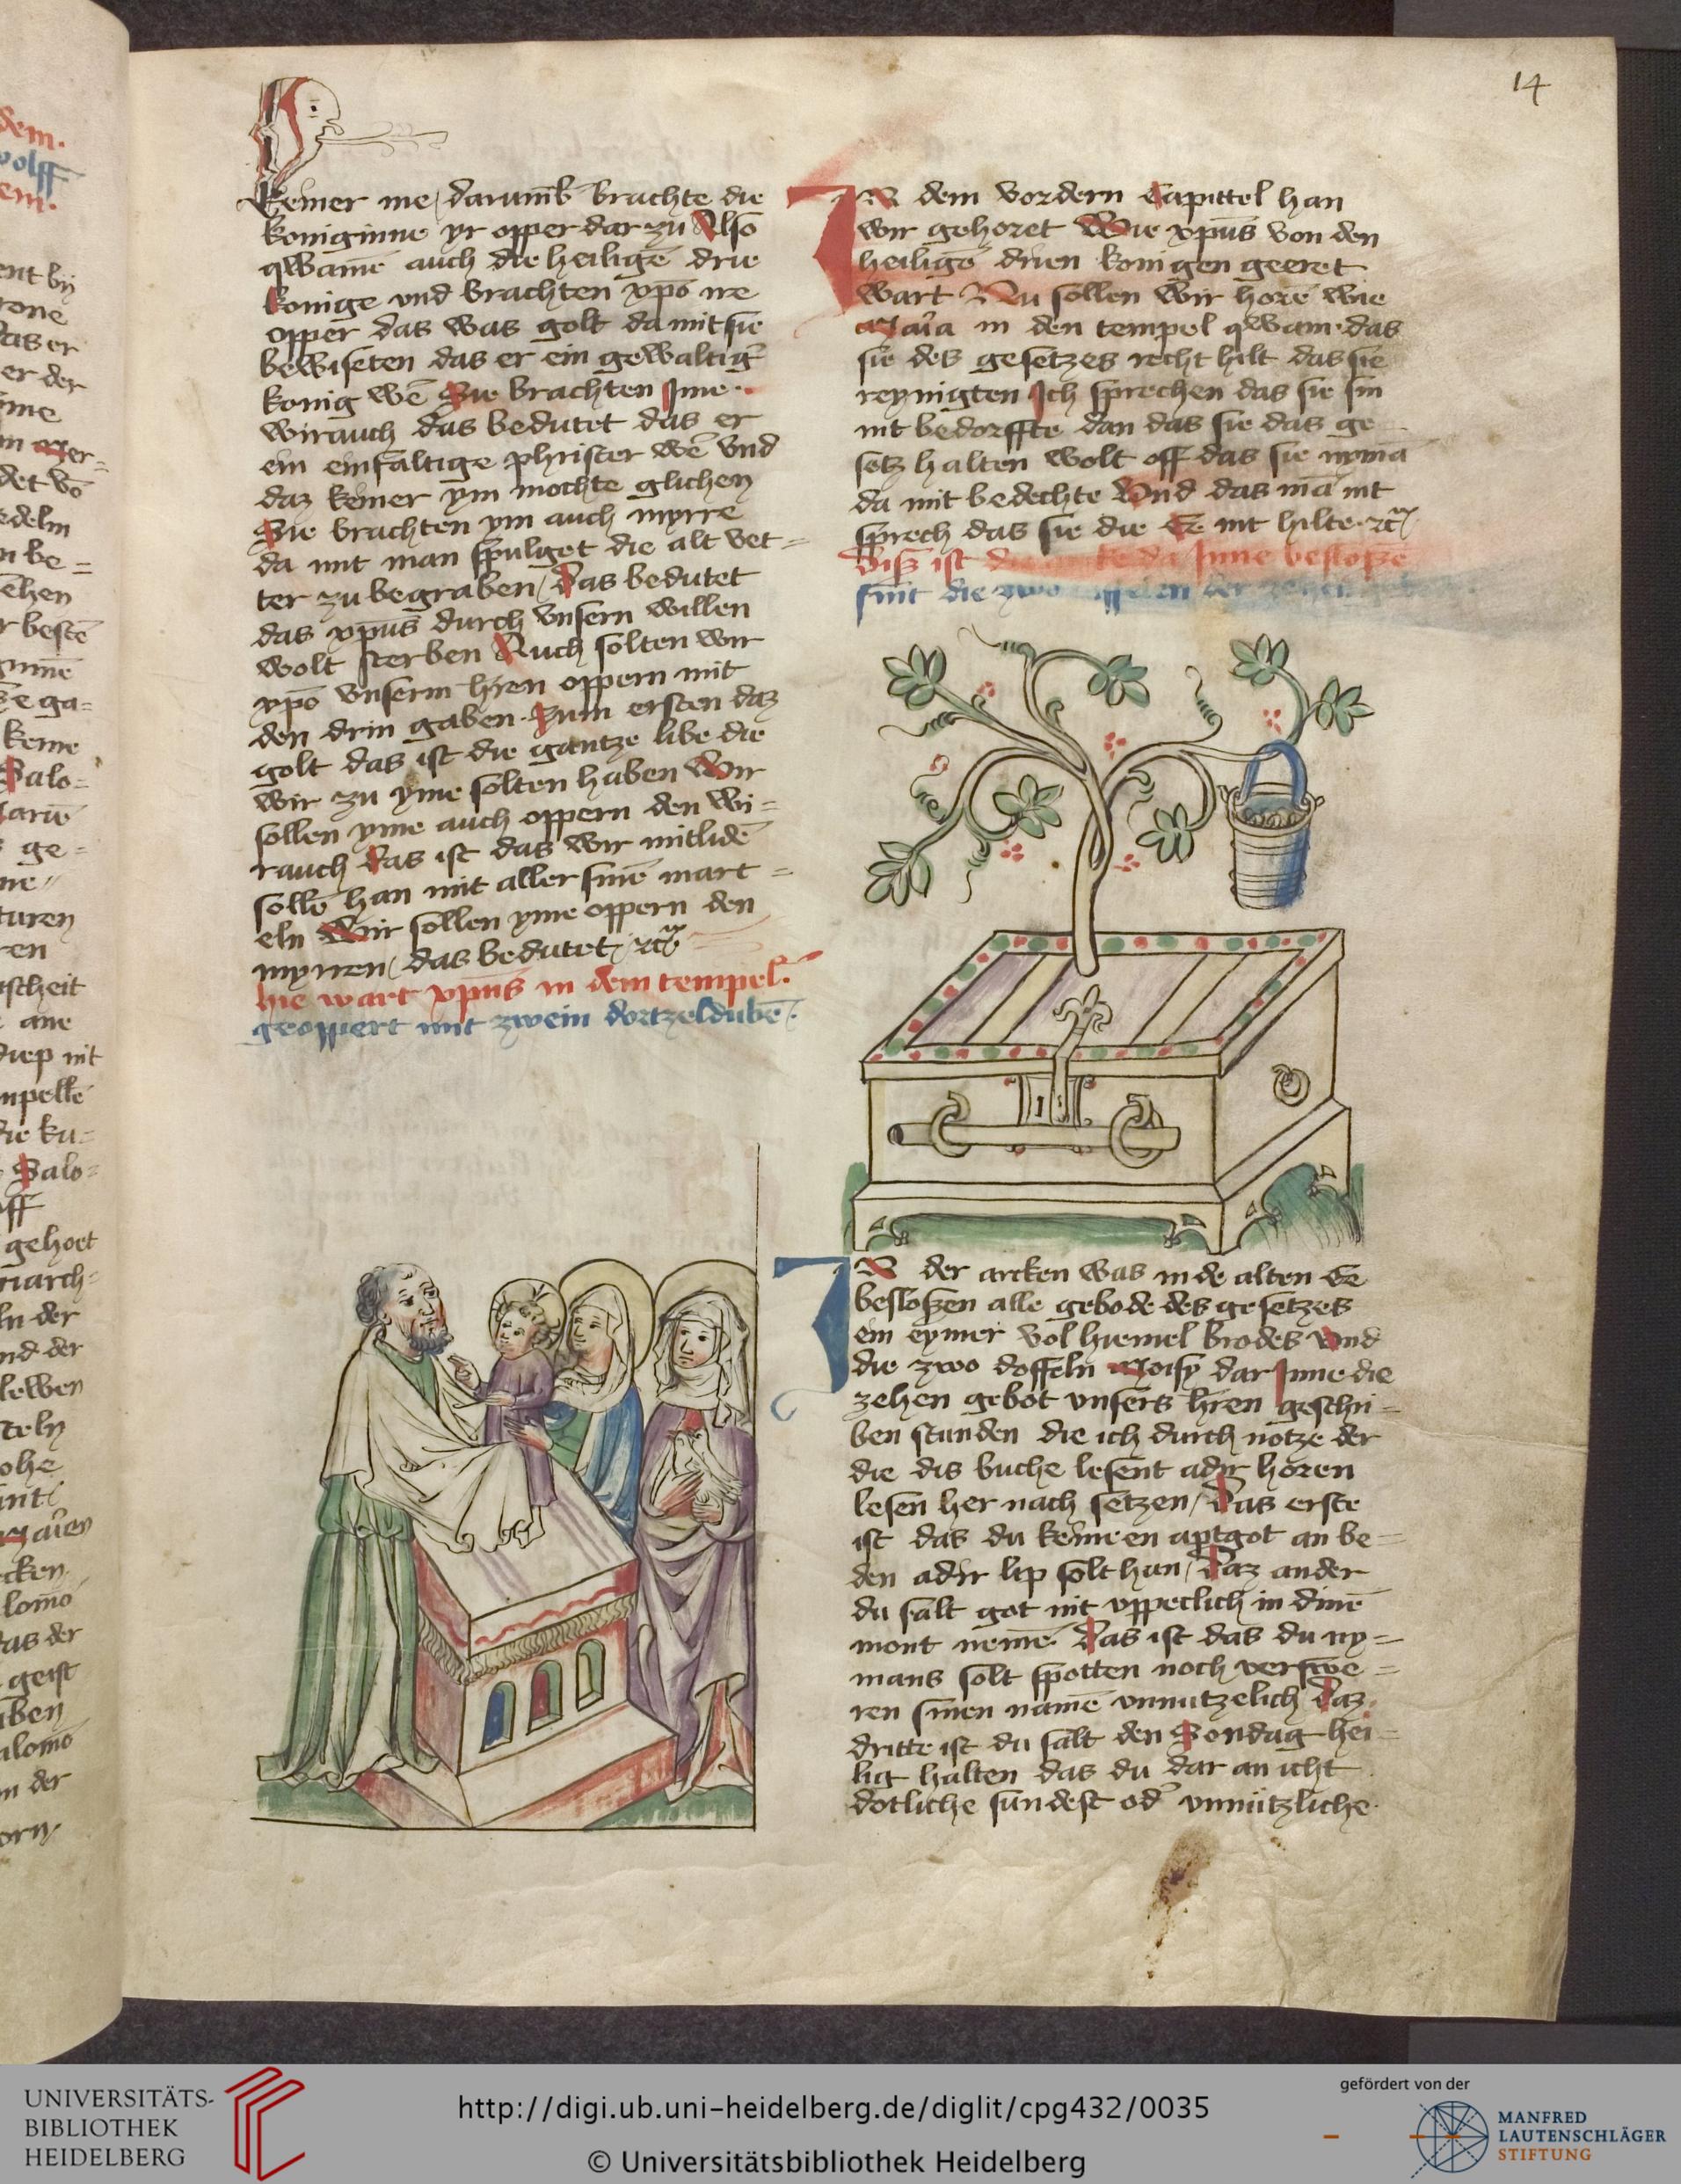 14
keiner me / darumb brachte die
koniginne yr opper dar zu Also
qwamē auch die heiligē drie
konige vnd brachten xpo ire
opper das was golt da mit sie
bewiseten das er ein gewaltigr̄
konig wē Sie brachten Ime
wirauch das bedutet das er
ein einfaltige phrister wē vnd
daz keiner ym mochte glichen
Sie brachten ym auch myrre
da mit man spulget die alt vet=
ter zu begraben / das bedutet
das xpūs durch vnsern willen
wolt sterben Auch solten wir
xpō vnserm hr̄en oppern mit
den drin gaben. Zum ersten daz
golt das ist die gantze libe die
wir zu yme solten haben Wir
sollen yme auch oppern den wi=
rauch das ist das wir mitlidē
sollē han mit aller sinē mart=
eln Wir sollen yme oppern den
myrren / das bedutet / rc̄
hie wart xpūs in dem tempel.
geoppert mit zwein dortzeldubē.
IN dem vordern Capittel han
wir gehoret Wie xpūs von den
heiligē drien konigen geeret
wart Nu sollen wir horē wie
Mar̄ia in den tempel qwam. das
sie des gesetzes recht hilt das sie
reynigten Ich sprechen das sie sin
nit bedorffte dan das sie das ge
setz halten wolt off das sie nymā
da mit bedechte Vnd das mā nit
sprech das sie die Ee nit hilte. rc̄
Diß ist die Inne besloße
sint die zwo der
IN der arcken was in de alten Ee
besloßen alle gebode des gesetzes
ein eymer vol hiemel brodes vnd
die zwo doffeln Moisy dar Inne die
zehen gebot vnsers hr̄en geschri=
ben stunden die ich durch notze der
die dis buche lesent adir horen
lesen her nach setzen / Das erste
ist das du keinen aptgot an be=
den adir lip solt han / Daz ander
du salt got nit vppeclich in dinē
mont nemē Das ist das du ny=
mans solt spotten noch verswe=
ren sinen namē vnnutzelich Daz
dritte ist du salt den Sondag hei=
lig halten das du dar an icht
dotliche sundest od̄ vnnutzliche
UNIVERSITÄTS-
BIBLIOTHEK
HEIDELBERG
http://digi.ub.uni-heidelberg.de/diglit/cpg432/0035
© Universitätsbibliothek Heidelberg
gefördert von der
MANFRED
LAUTENSCHLÄGER
STIFTUNG